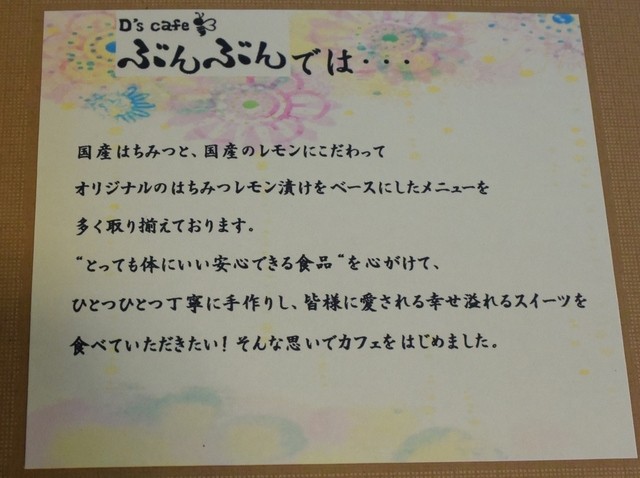 D's cafe
ぶんぶんでは・・・
国産はちみつと、国産のレモンにこだわって
オリジナルのはちみつレモン漬けをベースにしたメニューを
多く取り揃えております。
“とっても体にいい安心できる食品“を心がけて、
ひとつひとつ丁寧に手作りし、皆様に愛される幸せ溢れるスイーツを
食べていただきたい！そんな思いでカフェをはじめました。